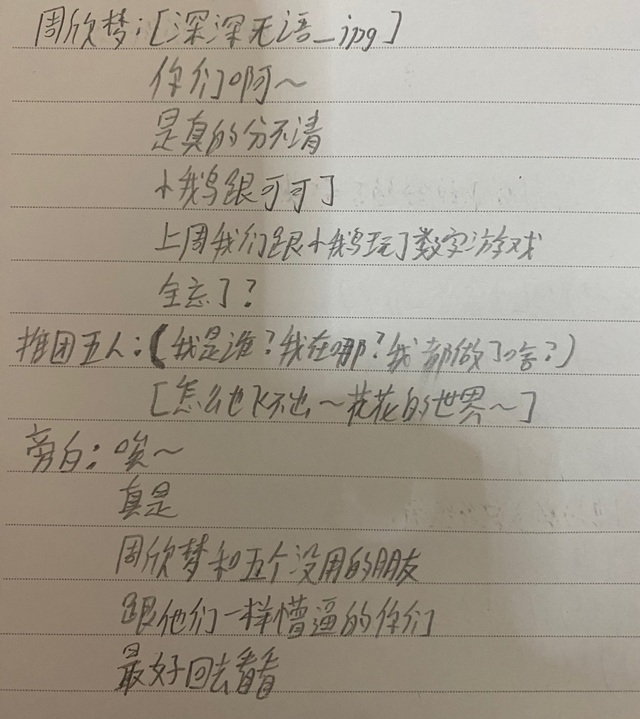 周欣梦:[深深无语_jpg]
你们啊~
是真的分不清
小鹅跟可可了
上周我们跟小鹅玩了数字游戏
全忘了?
推团五人:(我是谁?我在哪?我都做了啥?)
[怎么也飞不出~花花的世界~]
旁白:唉~
真是
周欣梦和五个没用的朋友
跟他们一样懵逼的你们
最好回去看看